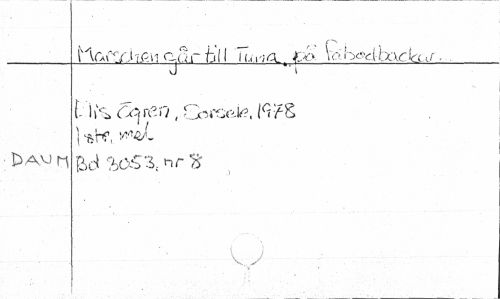 Marschen går till Tuna.. på fäbodbackar...
Elis Egren, Sorsele, 1978
1 str, mel
DAUM Bd 3053, nr 8